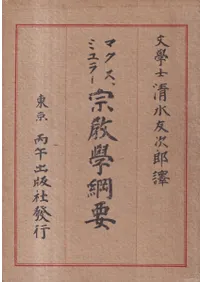 文學士 清水友次郎譯
マクス、ミユラー
宗敎學綱要
東京 丙午出版社發行